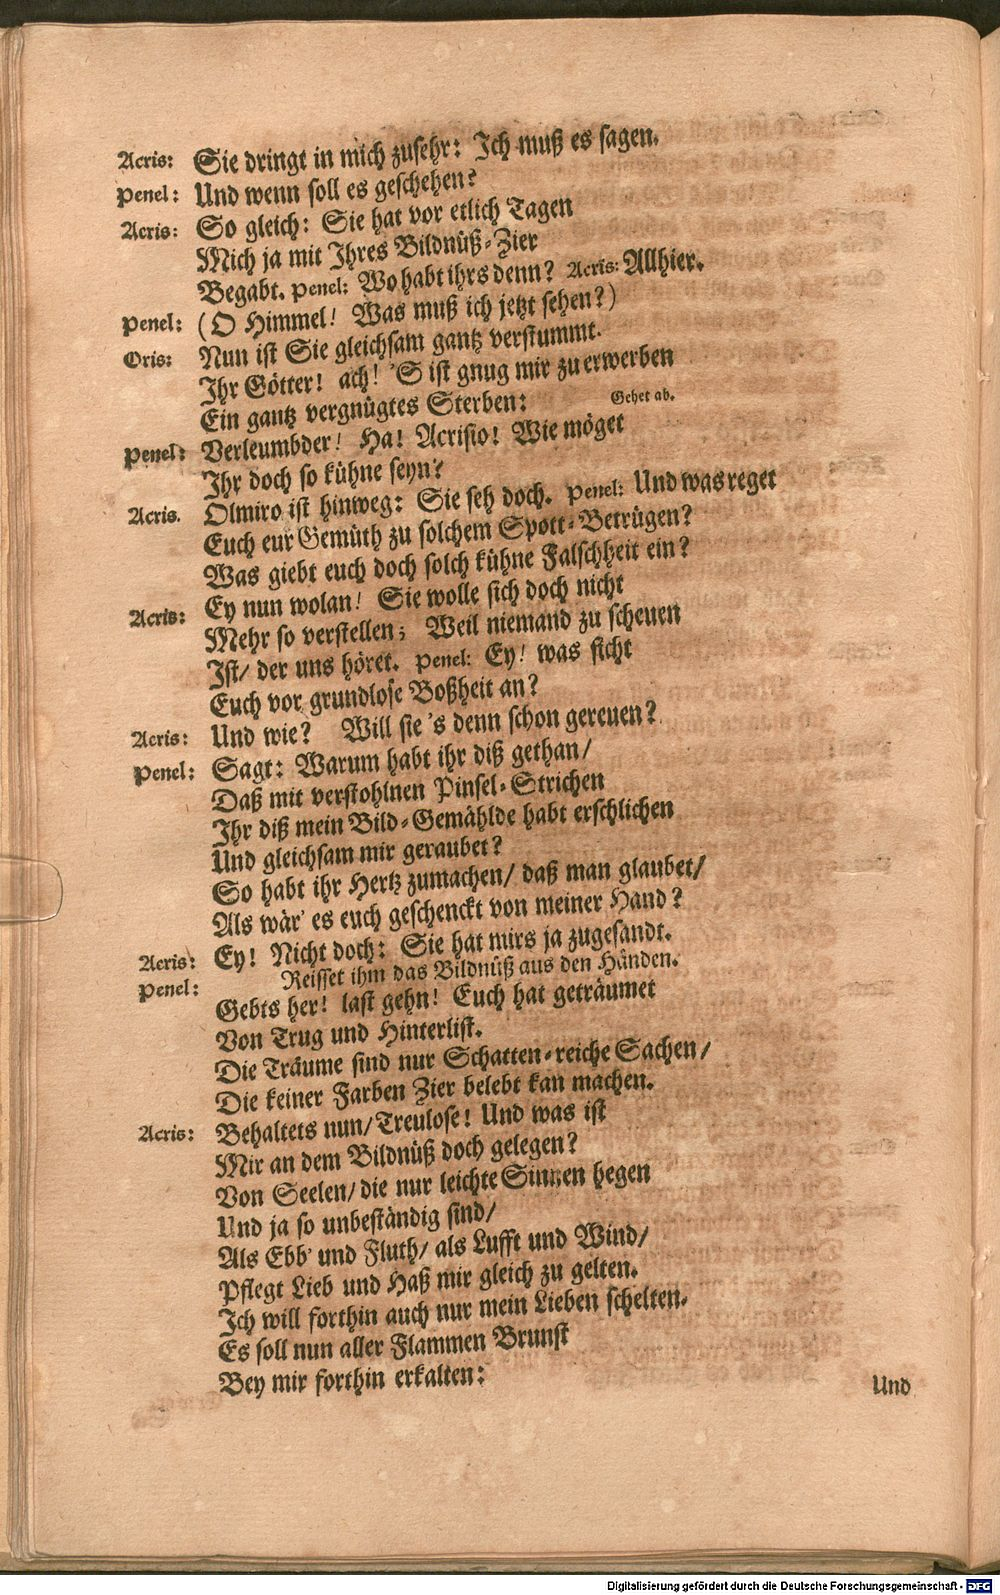 Acris: Sie dringt in mich zusehr: Ich muß es sagen.
Penel: Und wenn soll es geschehen?
Acris: So gleich: Sie hat vor etlich Tagen
Mich ja mit Ihres Bildnüß-Zier
Begabt. Penel: Wo habt ihrs denn? Acris: Allhier.
Penel: (O Himmel! Was muß ich jetzt sehen?)
Oris: Nun ist Sie gleichsam gantz verstummt.
Ihr Götter! ach! 'S ist gnug mir zu erwerben
Ein gantz vergnügtes Sterben: Gehet ab.
Penel: Verleumbder! Ha! Acrisio! Wie möget
Ihr doch so kühne seyn?
Acris. Olmiro ist hinweg: Sie seh doch. Penel: Und was reget
Euch eur Gemüth zu solchem Spott-Betrügen?
Was giebt euch doch solch kühne Falschheit ein?
Acris: Ey nun wolan! Sie wolle sich doch nicht
Mehr so verstellen; Weil niemand zu scheuen
Ist/ der uns höret. Penel: Ey! was ficht
Euch vor grundlose Boßheit an?
Acris: Und wie? Will sie 's denn schon gereuen?
Penel: Sagt: Warum habt ihr diß gethan/
Daß mit verstohlnen Pinsel-Strichen
Ihr diß mein Bild-Gemählde habt erschlichen
Und gleichsam mir geraubet?
So habt ihr Hertz zumachen/ daß man glaubet/
Als wär' es euch geschenckt von meiner Hand?
Acris: Ey! Nicht doch: Sie hat mirs ja zugesandt.
Penel: Reisset ihm das Bildnüß aus den Händen.
Gebts her! last gehn! Euch hat geträumet
Von Trug und Hinterlist.
Die Träume sind nur Schatten-reiche Sachen/
Die keiner Farben Zier belebt kan machen.
Acris: Behaltets nun/ Treulose! Und was ist
Mir an dem Bildnüß doch gelegen?
Von Seelen/ die nur leichte Sinnen hegen
Und ja so unbeständig sind/
Als Ebb' und Fluth/ als Lufft und Wind/
Pflegt Lieb und Haß mir gleich zu gelten.
Ich will forthin auch nur mein Lieben schelten.
Es soll nun aller Flammen Brunst
Bey mir forthin erkalten:
Und
Digitalisierung gefördert durch die Deutsche Forschungsgemeinschaft - DFG